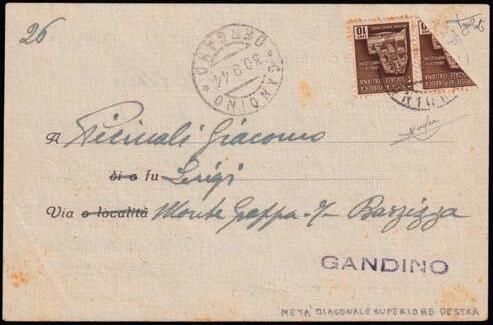 26
GANDINO
BERGAMO
30.9.44
10
POSTE REPUBBLICA
SOCIALE ITALIANA
A Picinali Giacomo
di o fu Luigi
Via o località Monte Grappa
GANDINO
META' DIAGONALE SUPERIORE DESTRA